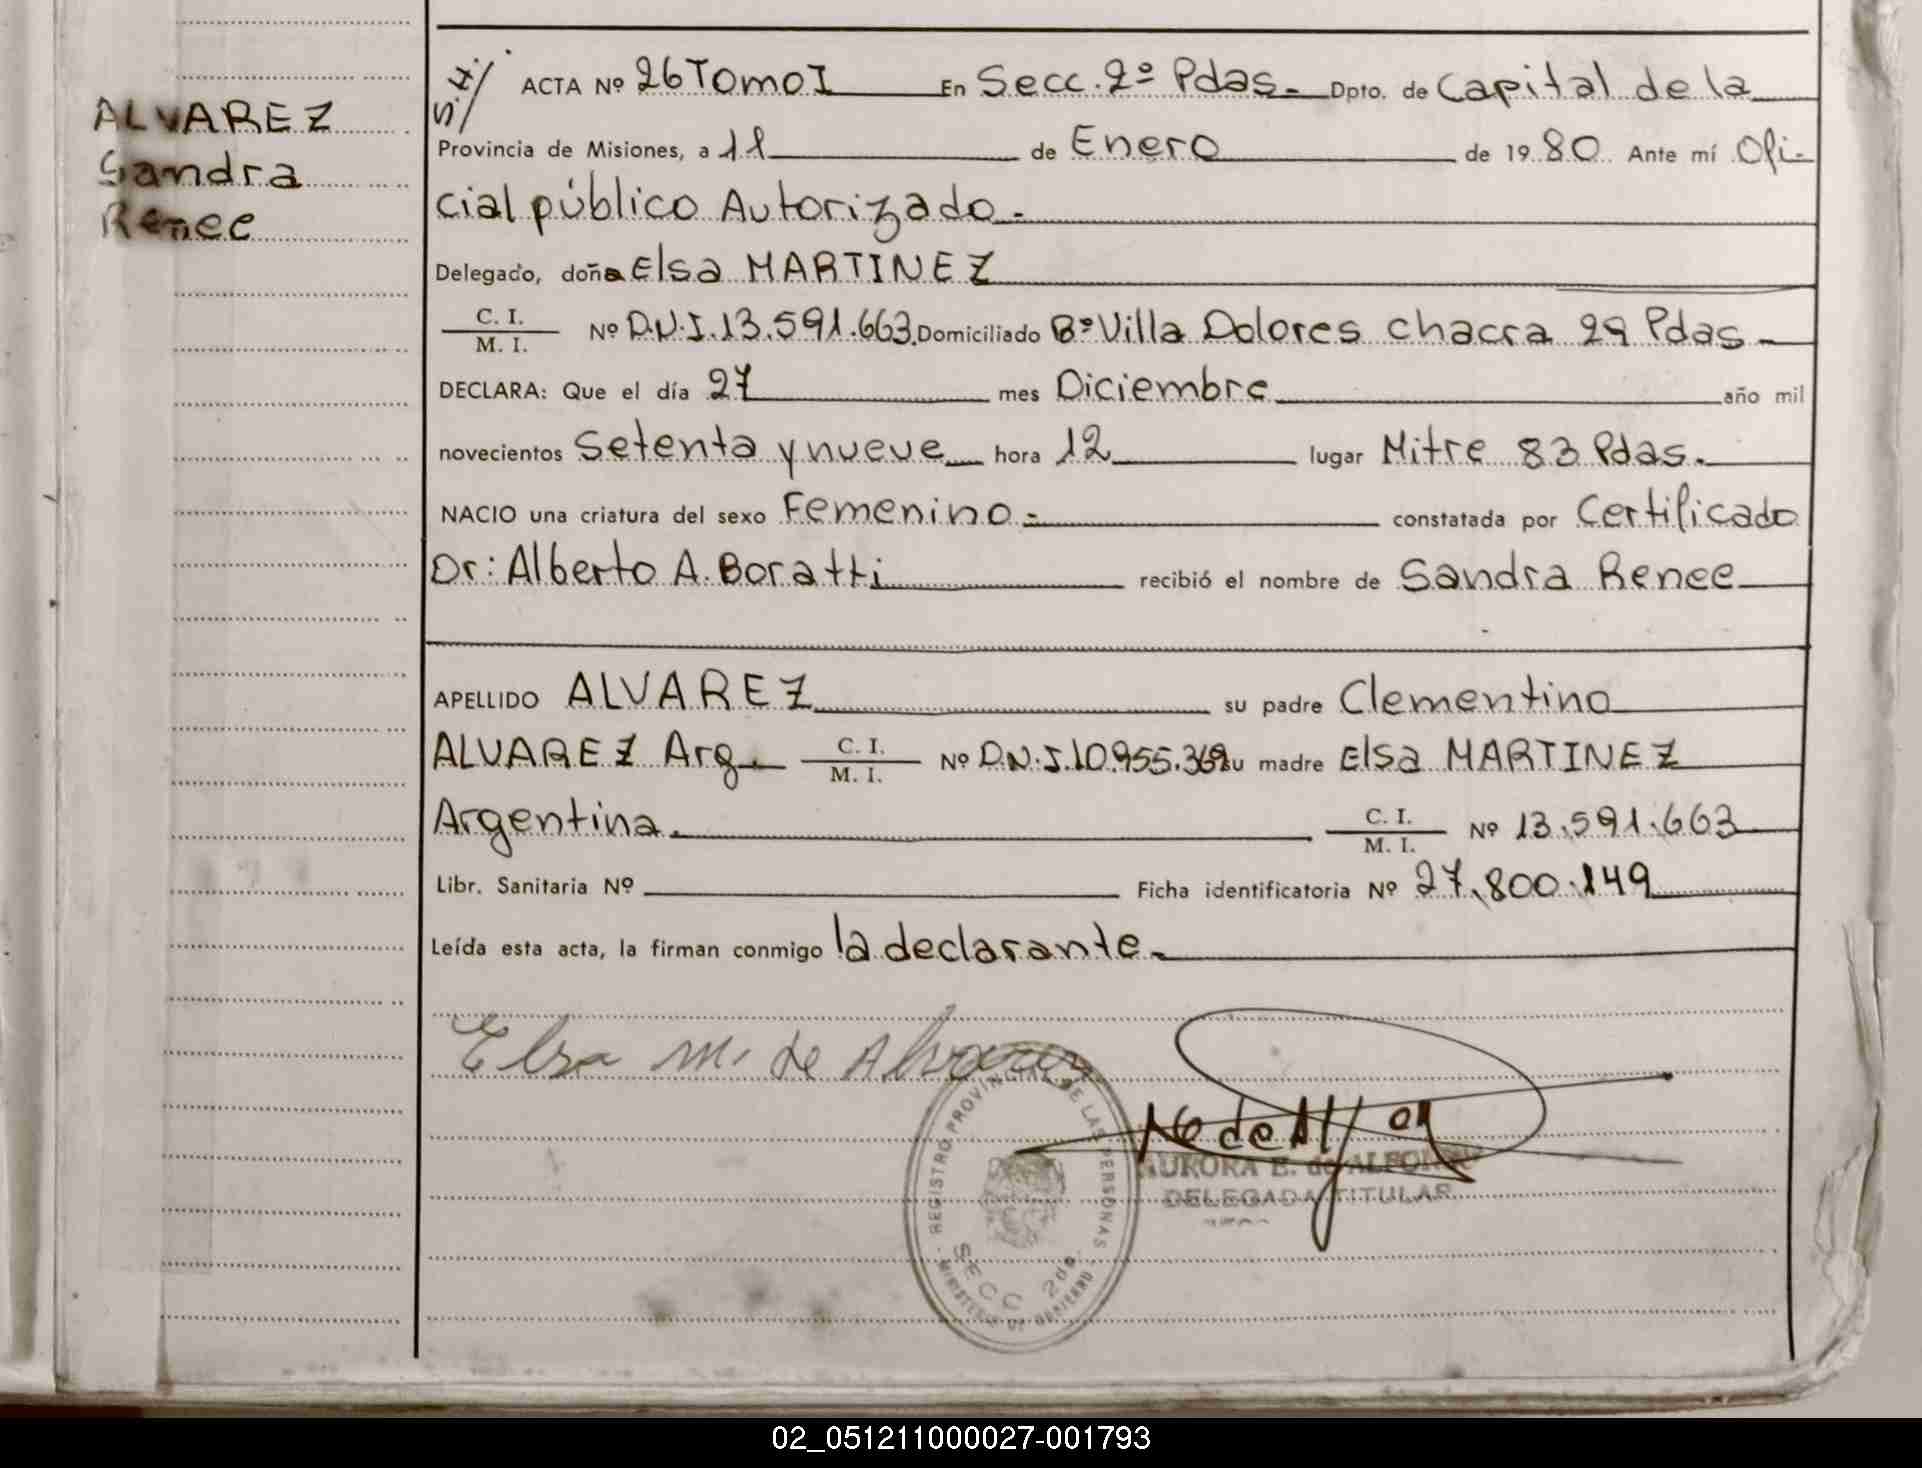 ALVAREZ
Sandra
Renee
S.H/ ACTA Nº 26 Tomo I En Secc. 2º Pdas. Dpto. de Capital de la
Provincia de Misiones, a 11 de Enero de 1980 Ante mí Ofi-
cial público Autorizado.
Delegado, doña Elsa MARTINEZ
C. I.
M. I. Nº D.N.I. 13.591.663 Domiciliado Bº Villa Dolores chacra 29 Pdas.
DECLARA: Que el día 27 mes Diciembre año mil
novecientos Setenta y nueve hora 12 lugar Mitre 83 Pdas.
NACIO una criatura del sexo Femenino constatada por Certificado
Dr: Alberto A. Boratti recibió el nombre de Sandra Renee
APELLIDO ALVAREZ su padre Clementino
ALVAREZ Arg. C. I.
M. I. Nº D.N.I. 10.955.369 su madre Elsa MARTINEZ
Argentina. C. I.
M. I. Nº 13.591.663
Libr. Sanitaria Nº Ficha identificatoria Nº 27.800.149
Leída esta acta, la firman conmigo la declarante.
Elsa M. de Alvarez
REGISTRO PROVINCIAL DE LAS PERSONAS
SECC 2da.
MINISTERIO DE GOBIERNO
AURORA E. de
DELEGADA TITULAR
02_051211000027-001793